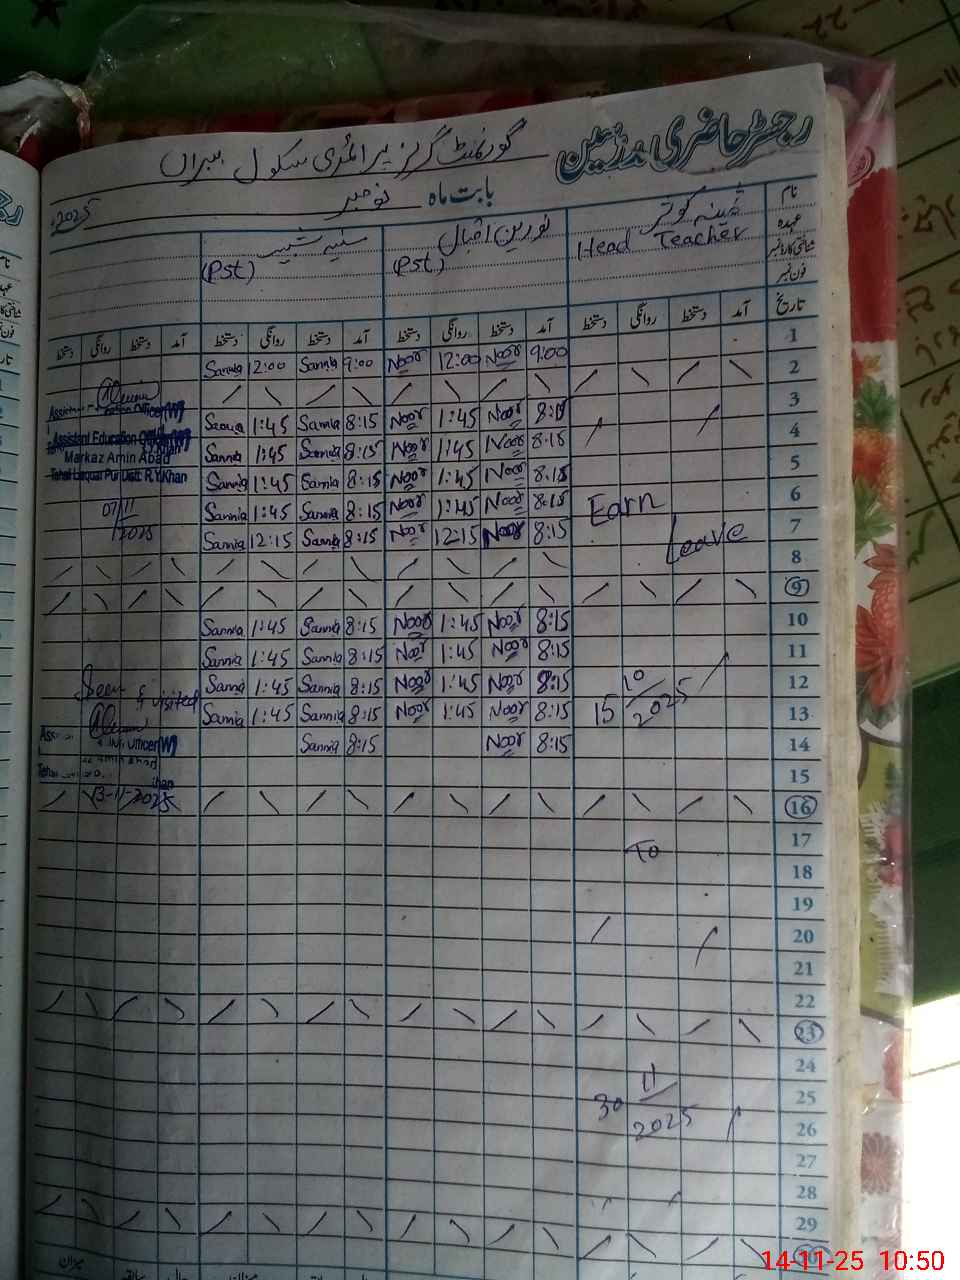 رجسٹر حاضری مدرسین
گورنمنٹ گرلز پرائمری سکول
بابت ماہ نومبر 2025
نام ثمینہ کوثر نورین اقبال سنیہ شبیر
عہدہ Head Teacher (Pst) (Pst)
شناختی کارڈ نمبر
فون نمبر
تاریخ آمد دستخط روانگی دستخط آمد دستخط روانگی دستخط آمد دستخط روانگی دستخط آمد دستخط روانگی دستخط
1 9:00 Noor 12:00 Noor 9:00 Sannia 12:00 Sannia
2
3 8:15 Noor 1:45 Noor 8:15 Sannia 1:45 Sannia
4 8:15 Noor 1:45 Noor 8:15 Sannia 1:45 Sannia
5 8:15 Noor 1:45 Noor 8:15 Sannia 1:45 Sannia
6 8:15 Noor 1:45 Noor 8:15 Sannia 1:45 Sannia
7 8:15 Noor 12:15 Noor 8:15 Sannia 12:15 Sannia
8
9
10 8:15 Noor 1:45 Noor 8:15 Sannia 1:45 Sannia
11 8:15 Noor 1:45 Noor 8:15 Sannia 1:45 Sannia
12 8:15 Noor 1:45 Noor 8:15 Sannia 1:45 Sannia
13 8:15 Noor 1:45 Noor 8:15 Sannia 1:45 Sannia
14 8:15 Noor 8:15 Sannia
15
16
17
18
19
20
21
22
23
24
25
26
27
28
29
Earn
Leave
15 10/2025
To
30 11/2025
Assistant Education Officer (W)
Markaz Amin Abad
Tehsil Liaquat Pur Distt. R.Y.Khan
07/11/2025
Seen & visited
Officer (W)
13-11-2025
میزان
14-11-25 10:50